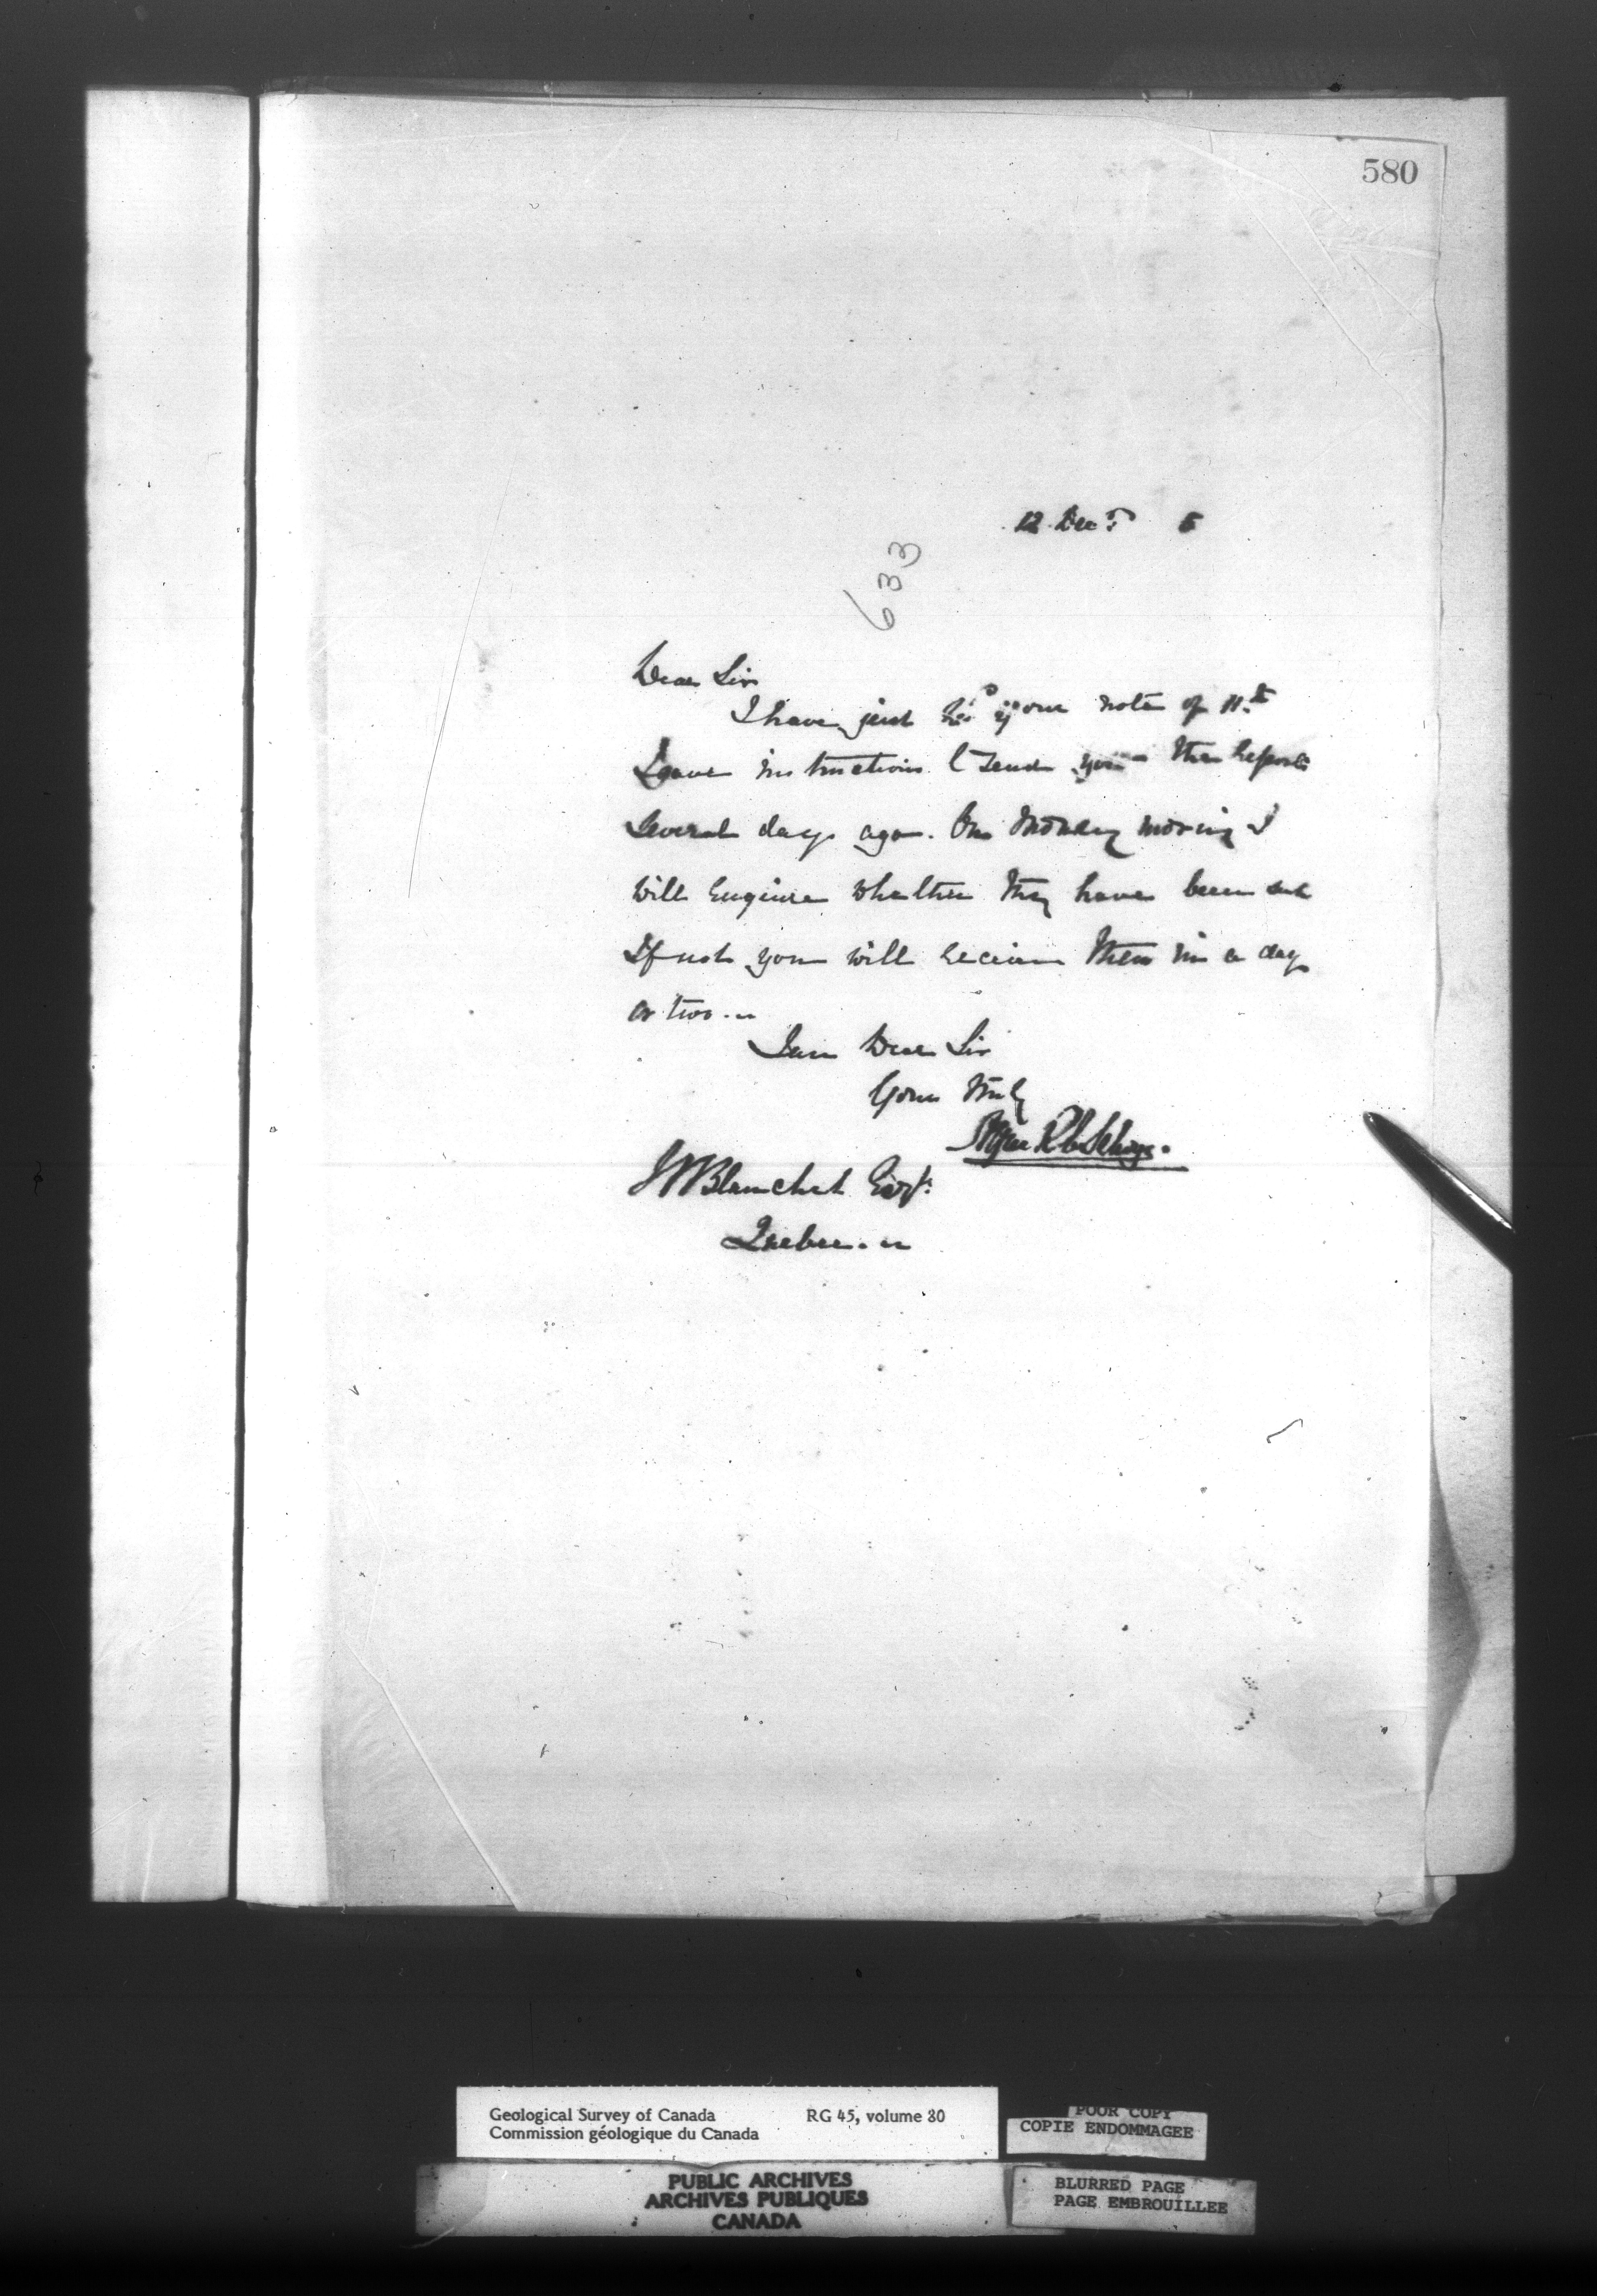 580
12 Decr 5
633
Dear Sir
I have just recd your note of 11th
I gave instructions to send you the Reports
several days ago. On Monday morning I
will enquire whether they have been sent
If not you will receive them in a day
or two.
I am Dear Sir
Yours truly
Alfred R C Selwyn.
J W Blanchet Esqr.
Quebec.
Geological Survey of Canada RG 45, volume 80
Commission géologique du Canada
POOR COPY
COPIE ENDOMMAGEE
PUBLIC ARCHIVES
ARCHIVES PUBLIQUES
CANADA
BLURRED PAGE
PAGE EMBROUILLEE